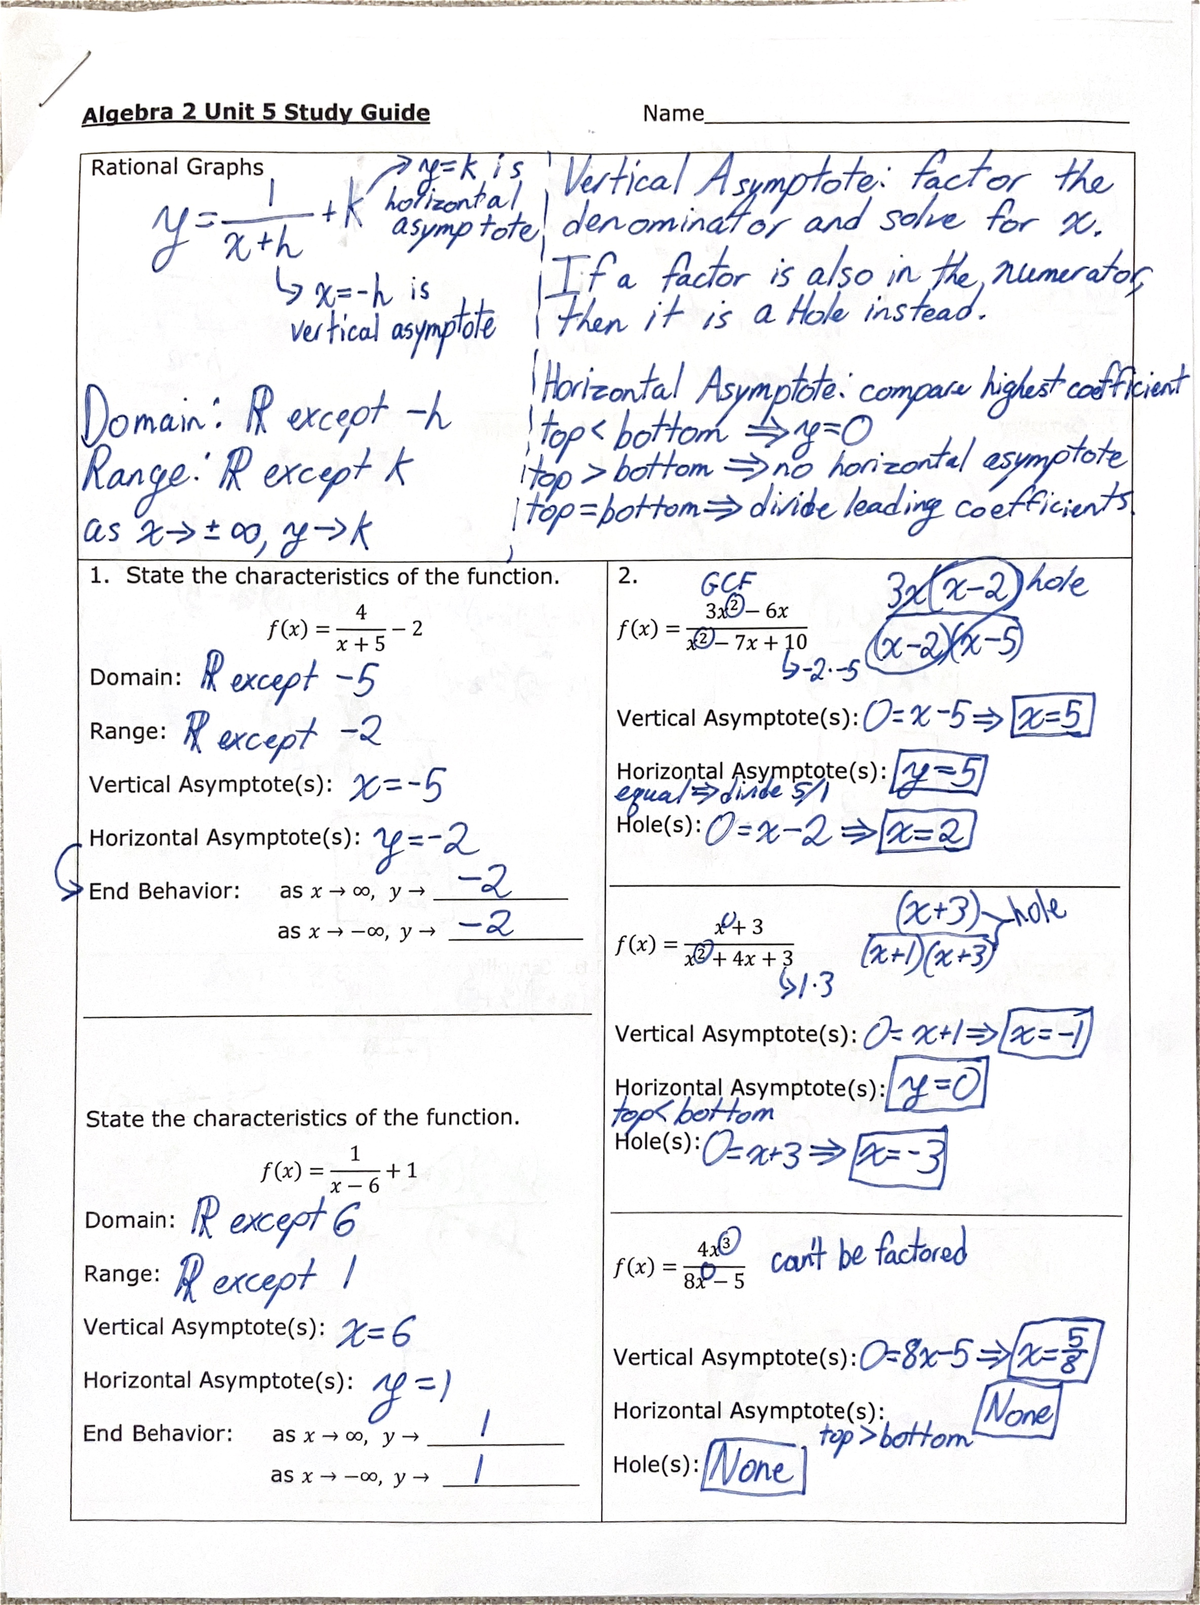 Algebra 2 Unit 5 Study Guide Name
Rational Graphs
y = 1/(x+h) + k
→ y=k is
horizontal
asymptote
↳ x=-h is
vertical asymptote
Domain: ℝ except -h
Range: ℝ except k
as x→±∞, y→k
Vertical Asymptote: factor the
denominator and solve for x.
If a factor is also in the numerator,
then it is a Hole instead.
Horizontal Asymptote: compare highest coefficient
top < bottom ⇒ y=0
top > bottom ⇒ no horizontal asymptote
top = bottom ⇒ divide leading coefficients.
1. State the characteristics of the function.
f(x) = 4/(x + 5) − 2
Domain: ℝ except -5
Range: ℝ except -2
Vertical Asymptote(s): x=-5
Horizontal Asymptote(s): y=-2
End Behavior: as x → ∞, y → -2
as x → −∞, y → -2
State the characteristics of the function.
f(x) = 1/(x − 6) + 1
Domain: ℝ except 6
Range: ℝ except 1
Vertical Asymptote(s): x=6
Horizontal Asymptote(s): y=1
End Behavior: as x → ∞, y → 1
as x → −∞, y → 1
2.
GCF
f(x) = (3x² − 6x)/(x² − 7x + 10)
↳ -2·-5
3x(x-2) hole
(x-2)(x-5)
Vertical Asymptote(s): 0=x-5 ⇒ x=5
Horizontal Asymptote(s): y=5
equal ⇒ divide 5/1
Hole(s): 0=x-2 ⇒ x=2
f(x) = (x + 3)/(x² + 4x + 3)
↳ 1·3
(x+3) hole
(x+1)(x+3)
Vertical Asymptote(s): 0=x+1 ⇒ x=-1
Horizontal Asymptote(s): y=0
top < bottom
Hole(s): 0=x+3 ⇒ x=-3
f(x) = 4x³/(8x − 5) can't be factored
Vertical Asymptote(s): 0=8x-5 ⇒ x=5/8
Horizontal Asymptote(s): None
top > bottom
Hole(s): None